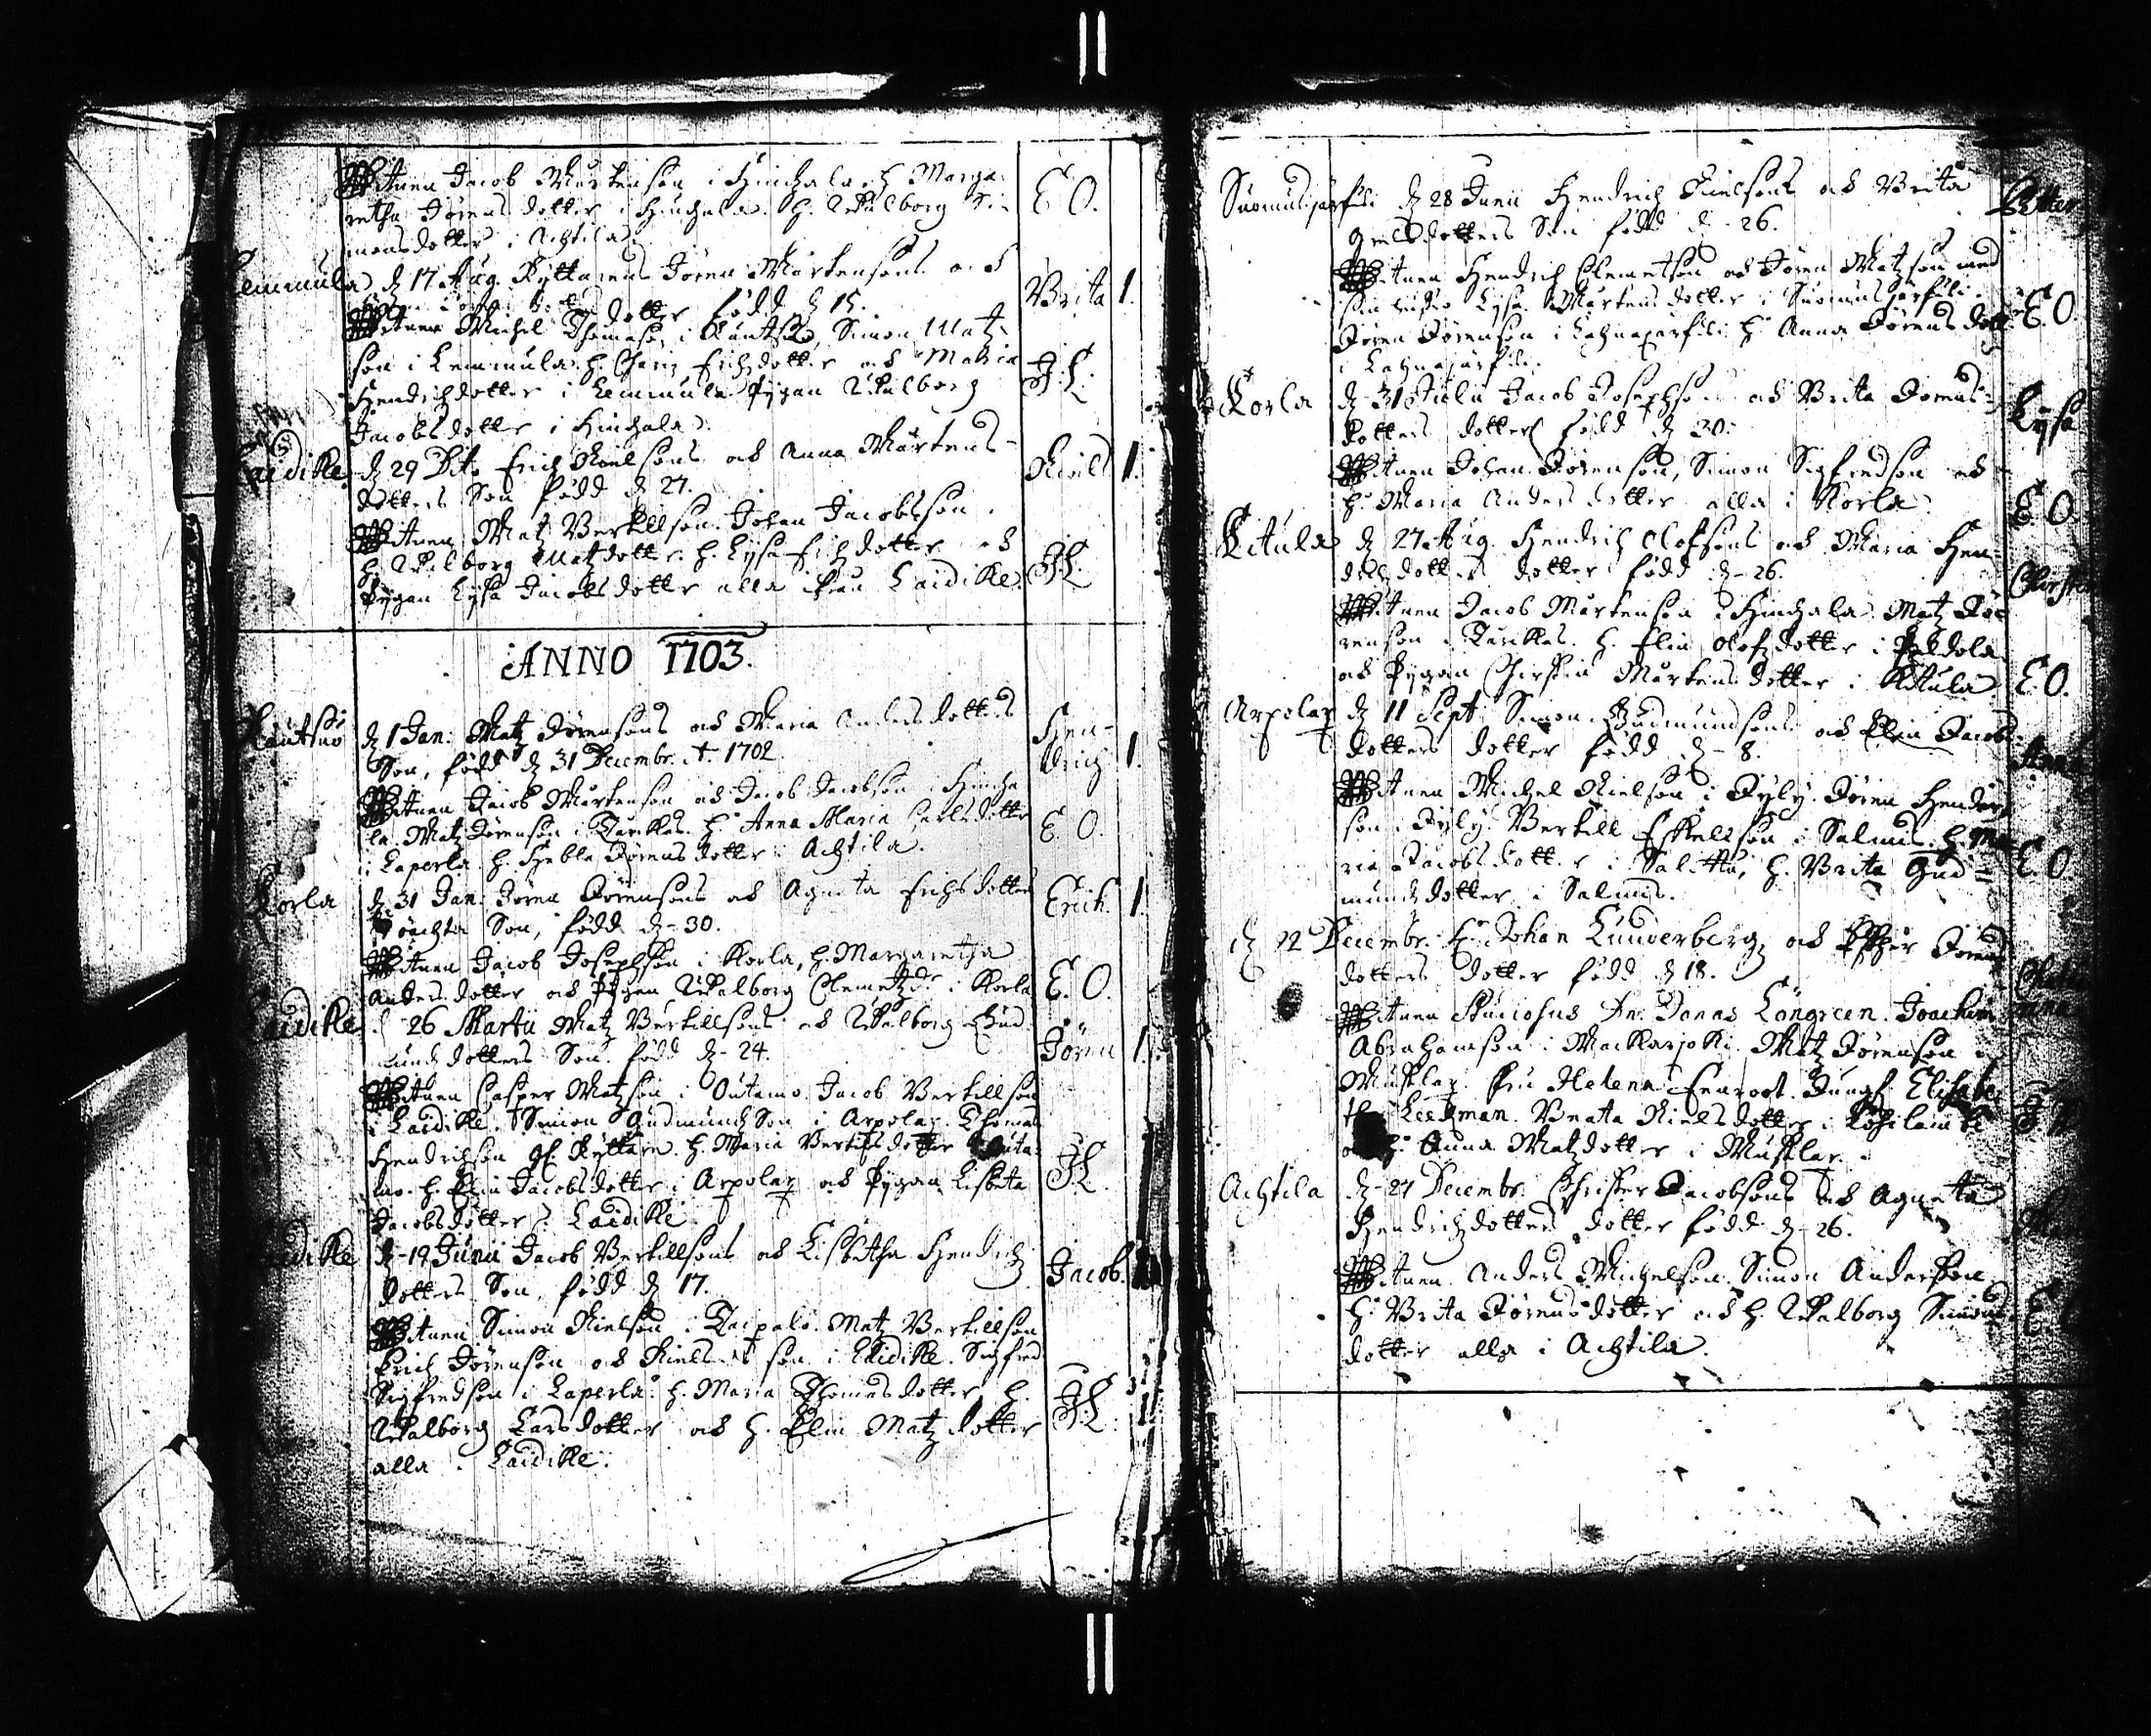 Witnen Jacob Mårtenson i Hinchala. h. Marga-
retha Jörensdotter i Hinchala. h. Walborg Si-
monsdotter i Achtila.
E O.
Lemmula d. 17 Aug. Ryttarens Jören Mårtensons och
dotter född d. 15.
Brita 1.
Witnen Michel Thomason i Rautsuo, Simon Matz-
son i Lemmula. h. Erichsdotter och Maria
Hendrichsdotter i Lemmula Pigan Walborg
Jacobsdotter i Hinchala.
Laidike d. 29 Dito Erich Nielsons och Anna Mårtens-
dotters Son född d. 27.
Niels 1.
Witnen Matz Bertillson. Johan Jacobsson.
h. Walborg Matzdotter. h. Lysa Erichsdotter och
Pigan Lysa Jacobsdotter alla ifrån Laidike.
ANNO 1703.
Rautsuo d. 1 Jan: Matz Jörensons och Maria Andersdotters
Son, född d. 31 Decembr. A. 1702.
Hen-
drich 1.
Witnen Jacob Mårtenson och Jacob Jacobson i Hincha
la. Matz Jörenson i Turckas. h. Anna Maria Carlsdotter
i Laperla. h. Hebla Jörensdotter i Achtila.
E O.
Korla d. 31 Jan. Jören Jörensons och Agneta Erichsdotters
oächta Son, född d. 30.
Erich. 1.
Witnen Jacob Josephson i Korla, h. Margaretha
Andersdotter och Pigan Walborg Clemetzdr i Korla
E. O.
Laidike d. 26 Martii Matz Bertillsons och Walborg Gud-
mundsdotters Son. född d. 24.
Jören 1.
Witnen Casper Matzson i Outamo. Jacob Bertillson
i Laidike. Simon Gudmundson i Arpolax. Thomas
Hendrichson Ryttare. h. Maria Bertilsdotter i Outa-
mo. h. Elin Jacobsdotter i Arpolax och Pigan Lisbeta
Jacobsdotter i Laidike.
Laidike d. 19 Junii Jacob Bertillsons och Lisbetha Hendrichs
dotters Son, född d. 17.
Jacob.
Witnen Simon Nielson i Taipalo. Matz Bertillson
Erich Jörenson och Niels son i Laidike. Sigfred
Sigfredson i Laperla. h. Maria Thomasdotter, h.
Walborg Larsdotter och h. Elin Matzdotter
alla i Laidike.
Suomusjärfwi d. 28 Junii Hendrich Nielsons och Brita
dotters Son född d. 26.
Petter
Witnen Hendrich Clemetson och Jören Matzson med
sin hustro Lysa Mårtensdotter i Suomusjärfwi.
Jören Jörenson i Lahnajärfwi. h. Anna Jörensdott.
i Lahnajärfwi.
E. O.
Korla d. 31 Julii Jacob Josephsons och Brita Jörens-
dotters dotter född d. 30.
Lysa
Witnen Johan Jörenson, Simon Sigfredson och
h. Maria Andersdotter alla i Korla.
E. O.
Kitula d. 27 Aug. Hendrich Olofsons och Maria Hen-
drichsdotters dotter född d. 26.
Witnen Jacob Mårtenson i Hinchala. Matz Jö-
renson i Turckas. h. Elin Olofsdotter i Paldola
och Pigan Chirstin Mårtensdotter i Kitula
E. O.
Arpolax d. 11 Sept. Simon Gudmundsons och Elin Jacobs-
dotters dotter född d. 8.
Anna
Witnen Michel Nielson i Pyly. Jören Hendrich-
son i Pyly. Bertill Eskelson i Salmis. h. Ma-
ria Jacobsdotter i Salittu, h. Brita Gud-
mundsdotter i Salmis.
E. O
d. 22 Decembr. Johan Lunderbergs och Jörens
dotters dotter född d. 18.
Witnen Studiosus Dn. Jonas Löngreen. Joachim
Abrahamson i Mackarjoki. Matz Jörenson i
Musklax. Fru Helena Jungf. Elisabe
th Leekman. Beata Nielsdotter i
och h. Anna Matzdotter i Musklax.
Achtila d. 27 Decembr. Christer Jacobsons och Agneta
Hendrichsdotters dotter född d. 26.
Witnen Anders Michelson. Simon Anderson
h. Brita Jörensdotter och h. Walborg Simons-
dotter alla i Achtila.